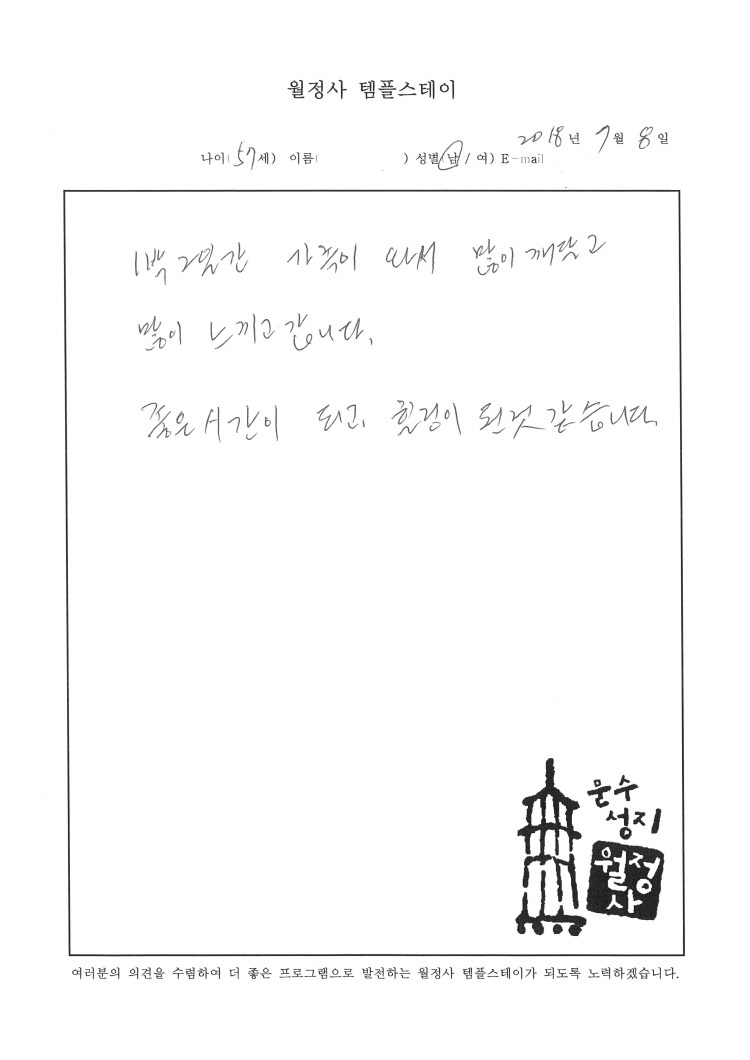 월정사 템플스테이
2018년 7월 8일
나이(57세) 이름( ) 성별(남 / 여) E-mail
1박 2일간 가족이 와서 많이 깨닫고
많이 느끼고 갑니다.
좋은 시간이 되고, 힐링이 된것 같습니다.
문수
성지
월정
사
여러분의 의견을 수렴하여 더 좋은 프로그램으로 발전하는 월정사 템플스테이가 되도록 노력하겠습니다.